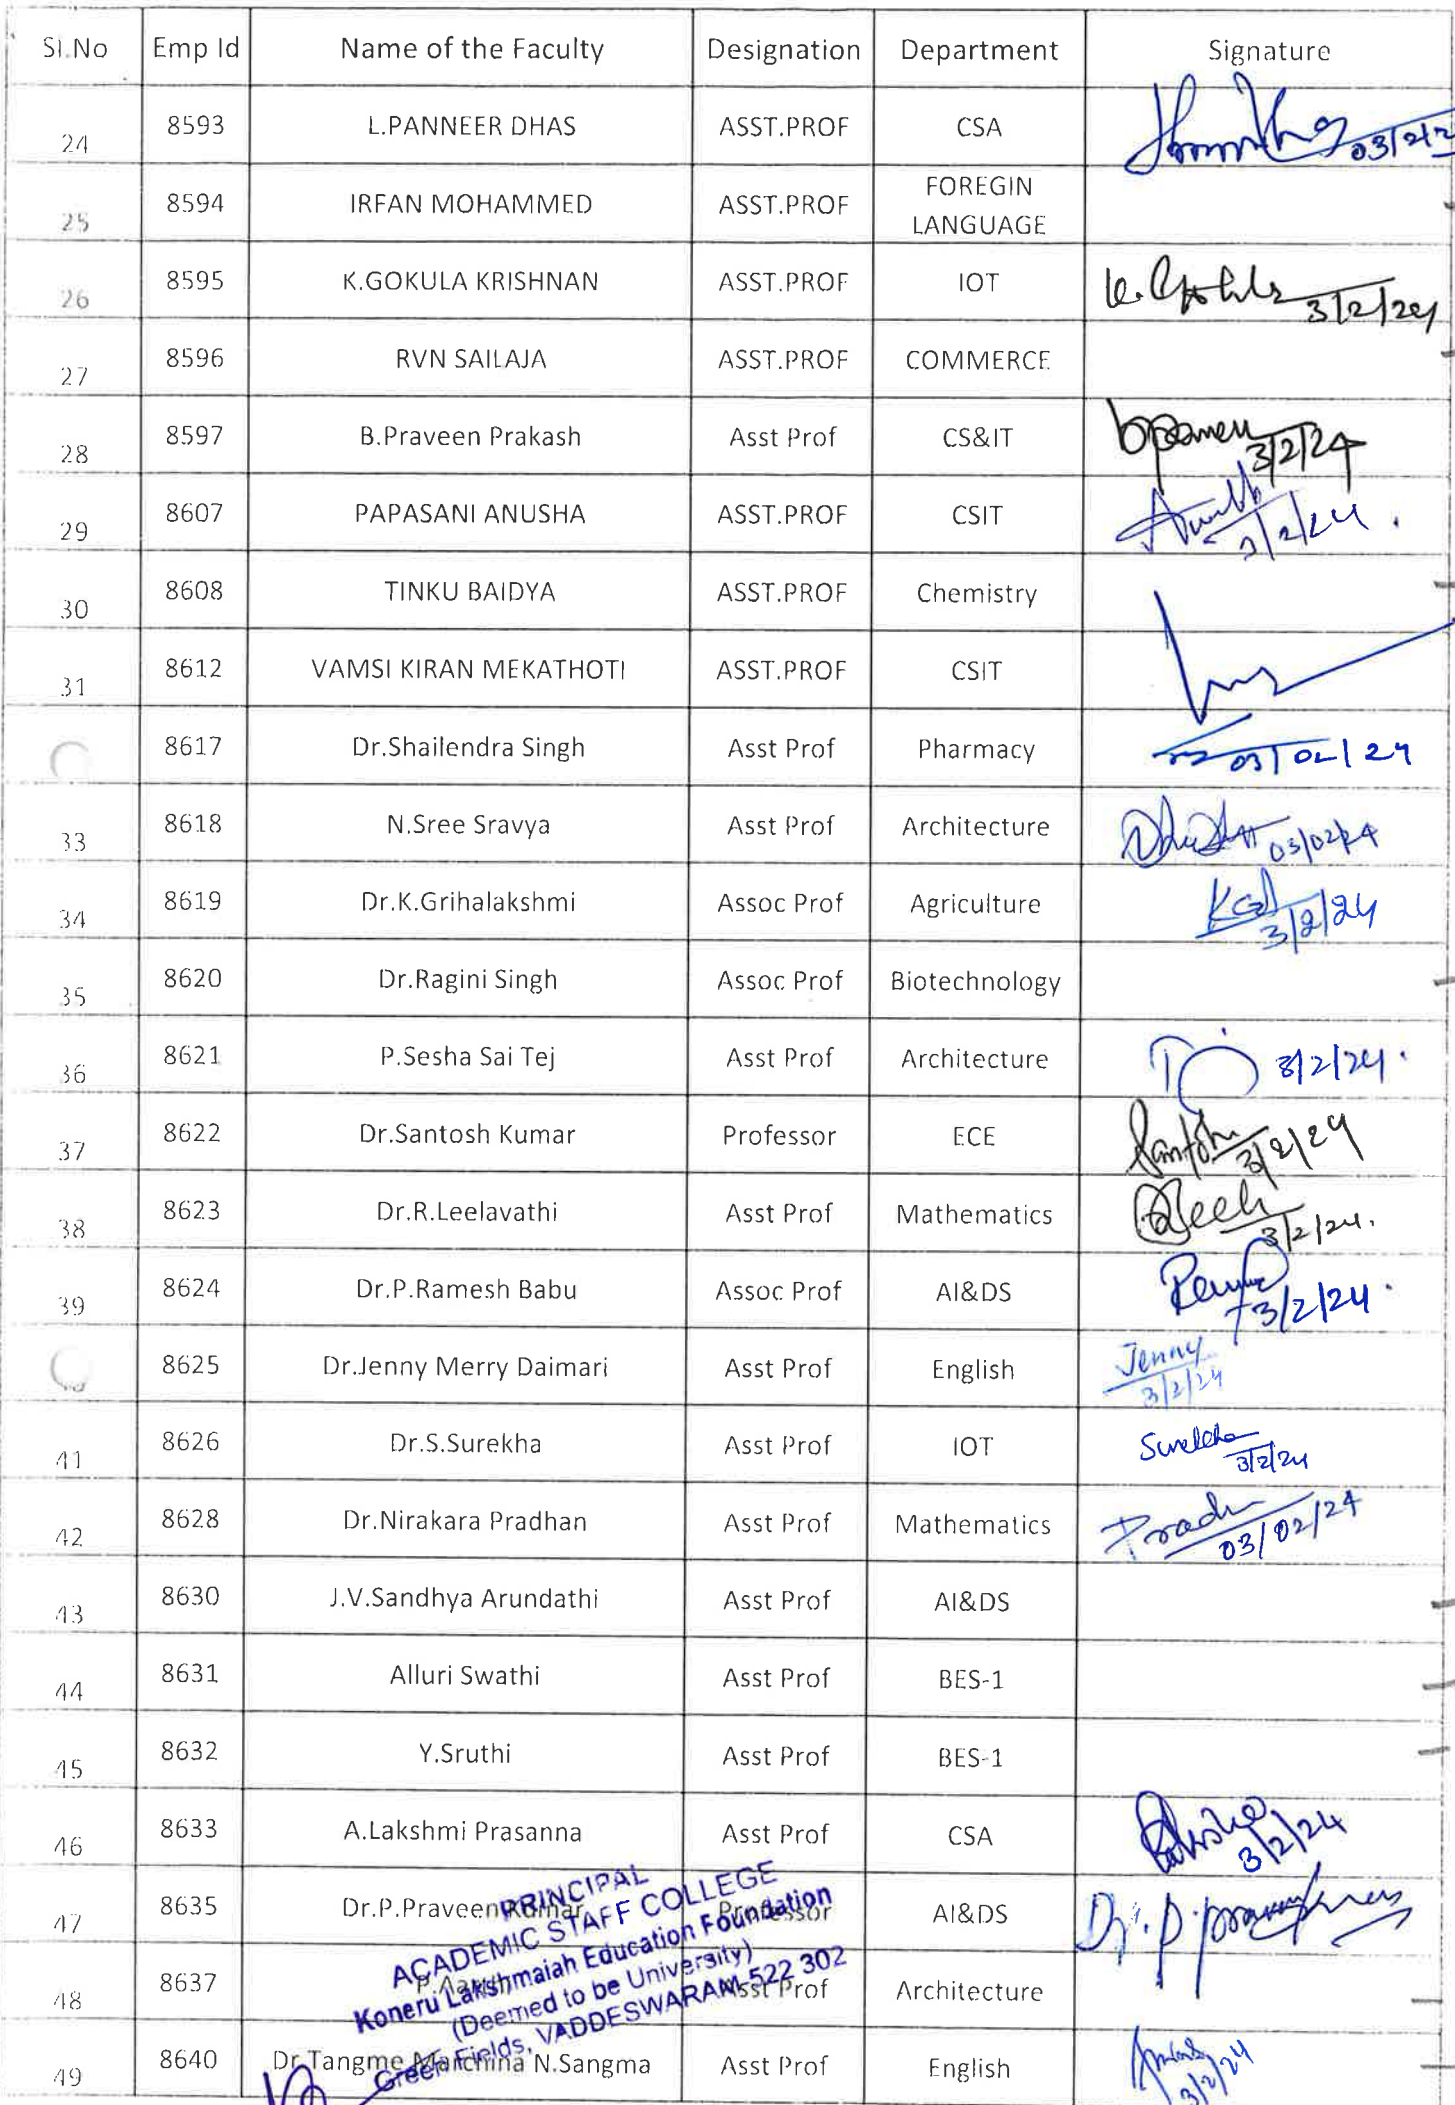 Sl.No Emp Id Name of the Faculty Designation Department Signature
24 8593 L.PANNEER DHAS ASST.PROF CSA 03/2/2
25 8594 IRFAN MOHAMMED ASST.PROF FOREGIN
LANGUAGE
26 8595 K.GOKULA KRISHNAN ASST.PROF IOT 3/2/24
27 8596 RVN SAILAJA ASST.PROF COMMERCE
28 8597 B.Praveen Prakash Asst Prof CS&IT 3/2/24
29 8607 PAPASANI ANUSHA ASST.PROF CSIT 3/2/24
30 8608 TINKU BAIDYA ASST.PROF Chemistry
31 8612 VAMSI KIRAN MEKATHOTI ASST.PROF CSIT
8617 Dr.Shailendra Singh Asst Prof Pharmacy 03/02/24
33 8618 N.Sree Sravya Asst Prof Architecture 03/02/24
34 8619 Dr.K.Grihalakshmi Assoc Prof Agriculture 3/2/24
35 8620 Dr.Ragini Singh Assoc Prof Biotechnology
36 8621 P.Sesha Sai Tej Asst Prof Architecture 3/2/24.
37 8622 Dr.Santosh Kumar Professor ECE 3/2/24
38 8623 Dr.R.Leelavathi Asst Prof Mathematics 3/2/24.
39 8624 Dr.P.Ramesh Babu Assoc Prof AI&DS 3/2/24.
8625 Dr.Jenny Merry Daimari Asst Prof English Jenny 3/2/24
41 8626 Dr.S.Surekha Asst Prof IOT Surekha 3/2/24
42 8628 Dr.Nirakara Pradhan Asst Prof Mathematics 03/02/24
43 8630 J.V.Sandhya Arundathi Asst Prof AI&DS
44 8631 Alluri Swathi Asst Prof BES-1
45 8632 Y.Sruthi Asst Prof BES-1
46 8633 A.Lakshmi Prasanna Asst Prof CSA 3/2/24
47 8635 Dr.P.Praveen Kumar Professor AI&DS
48 8637 Asst Prof Architecture
49 8640 Dr.Tangme Marchina N.Sangma Asst Prof English 3/2/24
PRINCIPAL
ACADEMIC STAFF COLLEGE
Koneru Lakshmaiah Education Foundation
(Deemed to be University)
Green Fields, VADDESWARAM-522 302